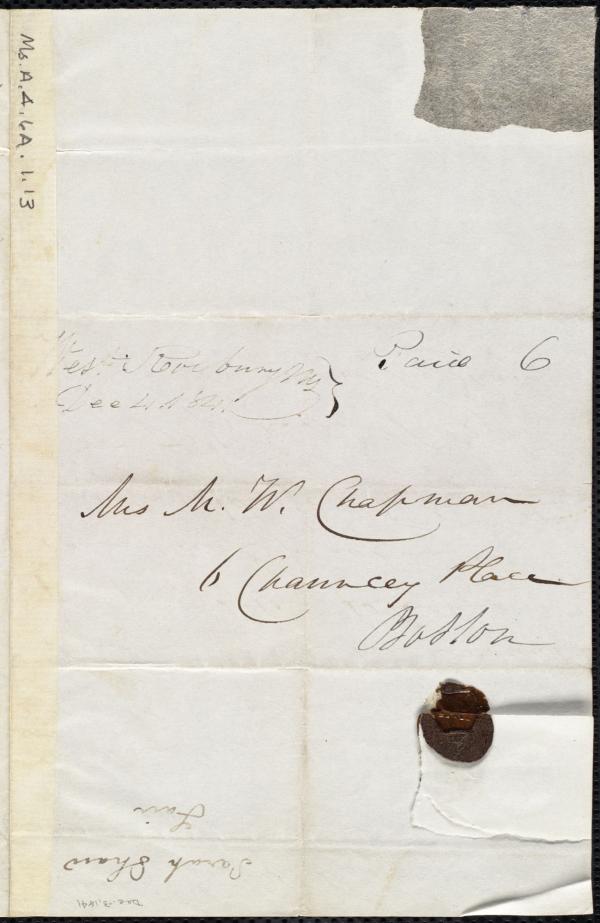 Ms. A. 4. 6A. 1. 13
West Roxbury Ms } Paid 6
Dec 4
Mrs M. W. Chapman
6 Chauncey Place
Boston
Fair
Sarah Shaw
Dec. 3, 1841